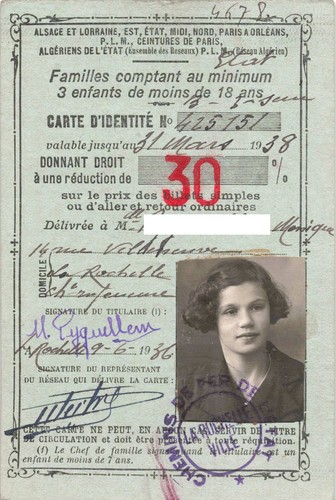 4678
ALSACE ET LORRAINE, EST, ÉTAT, MIDI, NORD, PARIS A ORLÉANS,
P.L.M., CEINTURES DE PARIS,
ALGÉRIENS DE L'ÉTAT (Ensemble des Réseaux) P.L.M. (Réseau Algérien)
Etat
Familles comptant au minimum
3 enfants de moins de 18 ans
CARTE D'IDENTITÉ No 425151
valable jusqu'au 31 Mars 1938
DONNANT DROIT
à une réduction de 30 %
sur le prix des billets simples
ou d'aller et retour ordinaires
Délivrée à M Monique
14 rue Villeneuve
DOMICILE
La Rochelle
Ch. inférieure
SIGNATURE DU TITULAIRE (1) :
M. Eyquellem
La Rochelle 9-6-1936
SIGNATURE DU REPRÉSENTANT
DU RÉSEAU QUI DÉLIVRE LA CARTE :
CHEMINS DE FER DE L'ETAT
LA ROCHELLE
VILLE
CETTE CARTE NE PEUT, EN AUCUN CAS, SERVIR DE TITRE
DE CIRCULATION et doit être présentée à toute réquisition.
(1) Le Chef de famille signe quand le titulaire est un
enfant de moins de 7 ans.